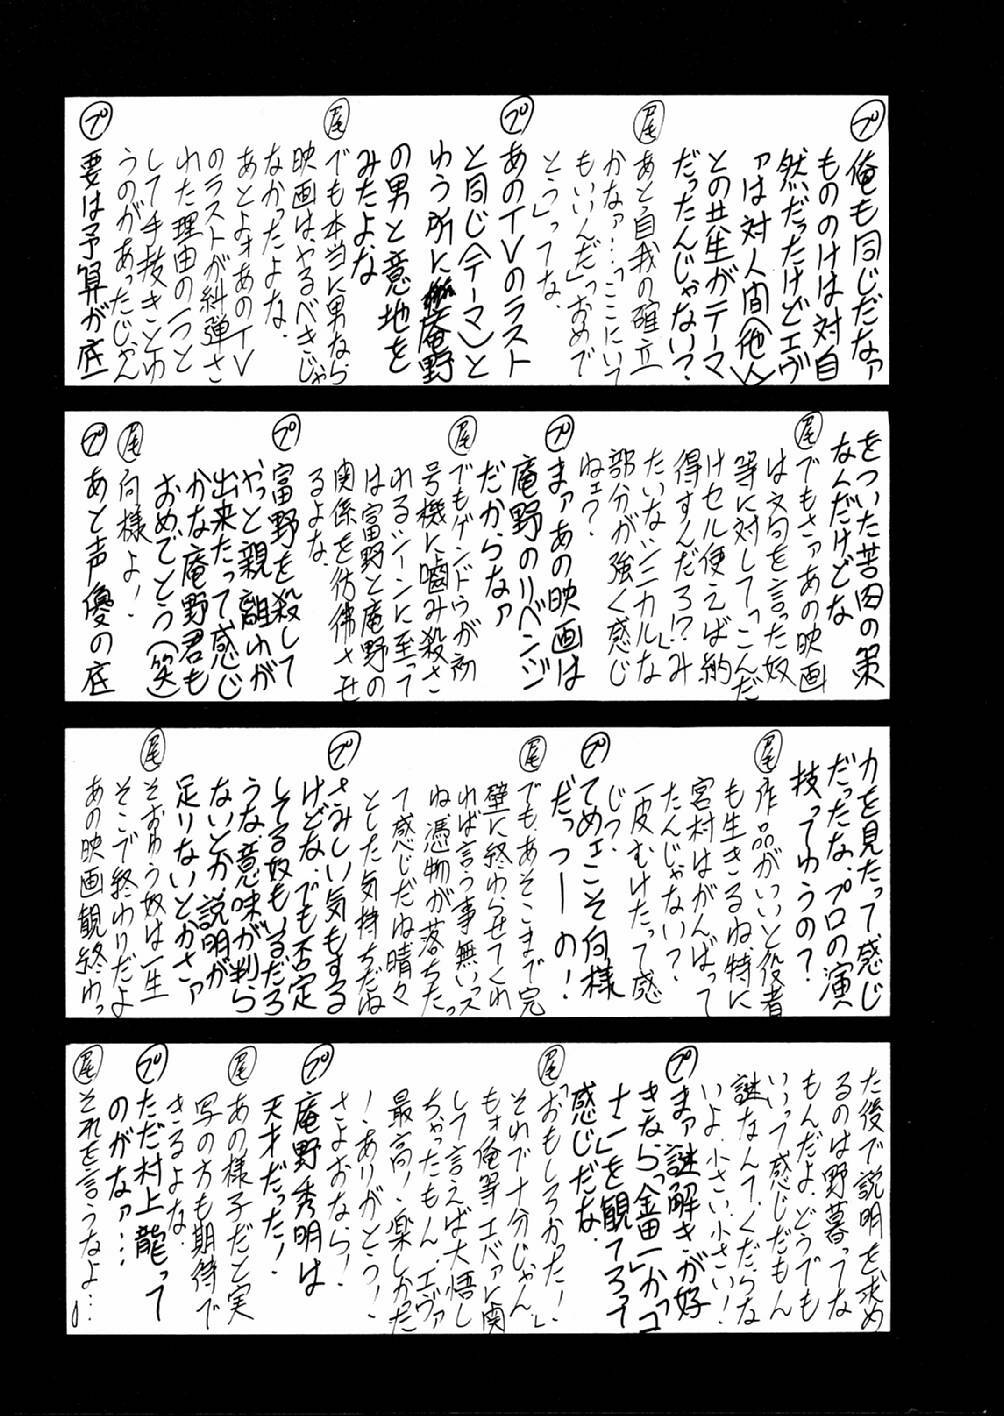 プ 俺も同じだなァ
もののけは対自
然だったけどエヴ
ァは対人間(他人)
との共生がテーマ
だったんじゃない?
尾 あと自我の確立
かなァ…「ここにいて
もいいんだ」「おめで
とう」ってな、
プ あのTVのラスト
と同じ(テーマ)と
ゆう所に庵野
の男と意地を
みたよな
尾 でも本当に男なら
映画は、やるべきじゃ
なかったよな、
あとよォあのTV
のラストが糾弾さ
れた理由の一つと
して手抜きとゆ
うのがあったじゃん
プ 要は予算が底
をついた苦肉の策
なんだけどな
尾 でもさァあの映画
は文句を言った奴
等に対して「こんだ
けセル使えば納
得すんだろ!?」み
たいなシニカルな
部分が強く感じ
ねェ?
プ まァあの映画は
庵野のリベンジ
だからなァ
尾 でもゲンドウが初
号機に噛み殺さ
れるシーンに至って
は富野と庵野の
関係を彷彿させ
るよな、
プ 富野を殺して
やっと親離れが
出来たって感じ
かな庵野君も
おめでとう(笑)
尾 向様よ!
プ あと声優の底
力を見たって感じ
だったな、プロの演
技ってゆうの?
尾 作品がいいと役者
も生きるね、特に
宮村はがんばって
たんじゃない?
一皮むけたって感
じっ、
プ てめェこそ何様
だっつーの!
尾 でも、あそこまで完
壁に終わらせてくれ
れば言う事無いっス
ね、憑物が落ちたっ
て感じだね晴々
とした気持ちだね
プ さみしい気もする
けどな、でも否定
してる奴もいるだろ
うな、意味が判ら
ないとか、説明が
足りないとかさァ
尾 そおゆう奴は一生
そこで終わりだよ
あの映画観終わっ
た後で説明を求め
るのは野暮ってな
もんだよ、どうでも
いいって感じだもん
謎なんて、くだらな
いよ、小さい小さい!
プ まァ謎解きが好
きなら「金田一かコ
ナン」を観てろって
感じだな、
尾 「おもしろかった!」
それで十分じゃん
もォ俺等エバァに関
して言えば大悟し
ちゃったもん、エヴァ
最高!、楽しかった
!、ありがとう!、
さよおなら!、
プ 庵野秀明は
天才だった!
尾 あの様子だと実
写の方も期待で
きるよな、
プ ただ村上龍って
のがなァ…
尾 それを言うなよ…